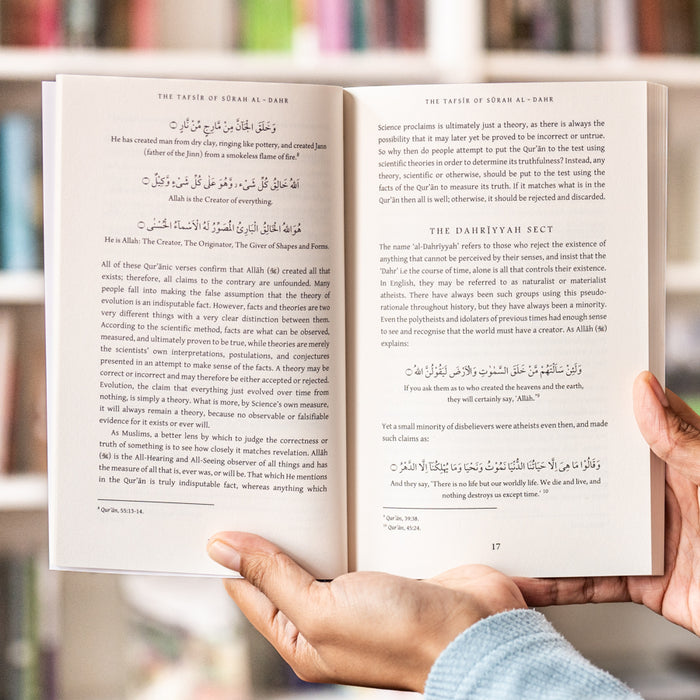 THE TAFSĪR OF SŪRAH AL-DAHR
وَخَلَقَ الْجَانَّ مِنْ مَّارِجٍ مِّنْ نَّارٍ
He has created man from dry clay, ringing like pottery, and created Jann
(father of the Jinn) from a smokeless flame of fire.⁸
اَللّٰهُ خَالِقُ كُلِّ شَىْءٍ ۙ وَّهُوَ عَلٰى كُلِّ شَىْءٍ وَّكِيْلٌ
Allah is the Creator of everything.
هُوَ اللّٰهُ الْخَالِقُ الْبَارِئُ الْمُصَوِّرُ لَهُ الْاَسْمَآءُ الْحُسْنٰى
He is Allah: The Creator, The Originator, The Giver of Shapes and Forms.
All of these Qur'ānic verses confirm that Allāh (ﷻ) created all that
exists; therefore, all claims to the contrary are unfounded. Many
people fall into making the false assumption that the theory of
evolution is an indisputable fact. However, facts and theories are two
very different things with a very clear distinction between them.
According to the scientific method, facts are what can be observed,
measured, and ultimately proven to be true, while theories are merely
the scientists' own interpretations, postulations, and conjectures
presented in an attempt to make sense of the facts. A theory may be
correct or incorrect and may therefore be either accepted or rejected.
Evolution, the claim that everything just evolved over time from
nothing, is simply a theory. What is more, by Science's own measure,
it will always remain a theory, because no observable or falsifiable
evidence for it exists or ever will.
As Muslims, a better lens by which to judge the correctness or
truth of something is to see how closely it matches revelation. Allāh
(ﷻ) is the All-Hearing and All-Seeing observer of all things and has
the measure of all that is, ever was, or will be. That which He mentions
in the Qur'ān is truly indisputable fact, whereas anything which
⁸ Qur'ān, 55:13-14.
THE TAFSĪR OF SŪRAH AL-DAHR
Science proclaims is ultimately just a theory, as there is always the
possibility that it may later yet be proved to be incorrect or untrue.
So why then do people attempt to put the Qur'ān to the test using
scientific theories in order to determine its truthfulness? Instead, any
theory, scientific or otherwise, should be put to the test using the
facts of the Qur'ān to measure its truth. If it matches what is in the
Qur'ān then all is well; otherwise, it should be rejected and discarded.
THE DAHRĪYYAH SECT
The name 'al-Dahrīyyah' refers to those who reject the existence of
anything that cannot be perceived by their senses, and insist that the
'Dahr' i.e the course of time, alone is all that controls their existence.
In English, they may be referred to as naturalist or materialist
atheists. There have always been such groups using this pseudo-
rationale throughout history, but they have always been a minority.
Even the polytheists and idolaters of previous times had enough sense
to see and recognise that the world must have a creator. As Allāh (ﷻ)
explains:
وَلَئِنْ سَاَلْتَهُمْ مَّنْ خَلَقَ السَّمٰوٰتِ وَالْاَرْضَ لَيَقُوْلُنَّ اللّٰهُ
If you ask them as to who created the heavens and the earth,
they will certainly say, 'Allah.'⁹
Yet a small minority of disbelievers were atheists even then, and made
such claims as:
وَقَالُوْا مَا هِىَ اِلَّا حَيَاتُنَا الدُّنْيَا نَمُوْتُ وَنَحْيَا وَمَا يُهْلِكُنَآ اِلَّا الدَّهْرُ
And they say, 'There is no life but our worldly life. We die and live, and
nothing destroys us except time.' ¹⁰
⁹ Qur'ān, 39:38.
¹⁰ Qur'ān, 45:24.
17